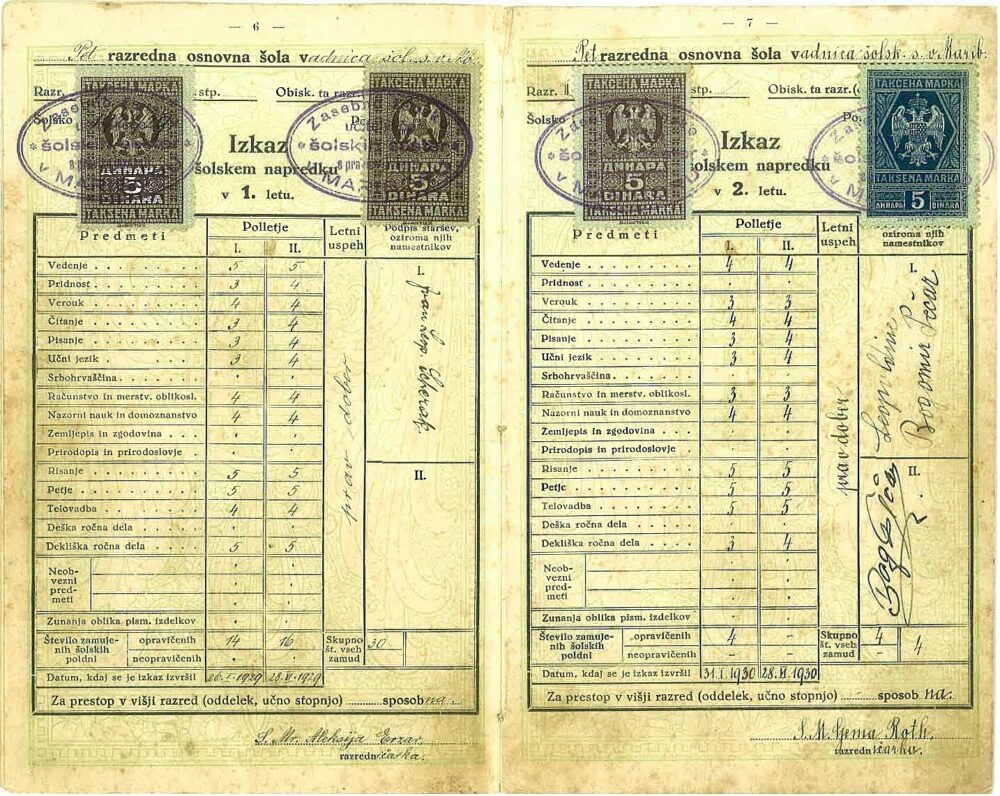 — 6 —
Pet razredna osnovna šola vadnica šol. s. v
Razr. stp. Obisk. ta razr.
Šolsko
ТАКСЕНА МАРКА
ДИНАРА
5
DINARA
TAKSENA MARKA
ТАКСЕНА МАРКА
ДИНАРА
5
DINARA
TAKSENA MARKA
Izkaz
šolskem napredku
v 1. letu.
Predmeti Polletje Letni uspeh Podpis staršev, oziroma njih namestnikov
I. II.
Vedenje 5 5 I.
Pridnost 3 4
Verouk 4 4
Čitanje 3 4
Pisanje 3 4
Učni jezik 3 4
Srbohrvaščina
Računstvo in merstv. oblikosl. 4 4
Nazorni nauk in domoznanstvo 4 4
Zemljepis in zgodovina
Prirodopis in prirodoslovje
Risanje 5 5 II.
Petje 5 5
Telovadba 4 4
Deška ročna dela
Dekliška ročna dela 5 5
prav dober
Neobvezni predmeti
Zunanja oblika pism. izdelkov
Število zamujenih šolskih poldni opravičenih 14 16 Skupno št. vseh zamud 30
neopravičenih
Datum, kdaj se je izkaz izvršil 26.I.1929 28.VI.1929
Za prestop v višji razred (oddelek, učno stopnjo) sposobna.
S. M. Aleksija Erzar
razredničarka.
— 7 —
Pet razredna osnovna šola vadnica šolsk. s. v Marib.
Razr. II stp. Obisk. ta razr.
Šolsko
ТАКСЕНА МАРКА
ДИНАРА
5
DINARA
TAKSENA MARKA
ТАКСЕНА МАРКА
ДИНАРА 5 DINARA
TAKSENA MARKA
Izkaz
šolskem napredku
v 2. letu.
Predmeti Polletje Letni uspeh oziroma njih namestnikov
I. II.
Vedenje 4 4 I.
Pridnost
Verouk 3 3
Čitanje 4 4
Pisanje 3 4
Učni jezik 3 4
Srbohrvaščina
Računstvo in merstv. oblikosl. 3 3
Nazorni nauk in domoznanstvo 4 4
Zemljepis in zgodovina
Prirodopis in prirodoslovje
Risanje 5 5 II.
Petje 5 5
Telovadba 5 5
Deška ročna dela
Dekliška ročna dela 3 4
prav dober
Neobvezni predmeti
Zunanja oblika pism. izdelkov
Število zamujenih šolskih poldni opravičenih 4 – Skupno št. vseh zamud 4 4
neopravičenih – –
Datum, kdaj se je izkaz izvršil 31.I.1930 28.VI.1930
Za prestop v višji razred (oddelek, učno stopnjo) sposobna.
S. M. Gema Roth
razredničarka.